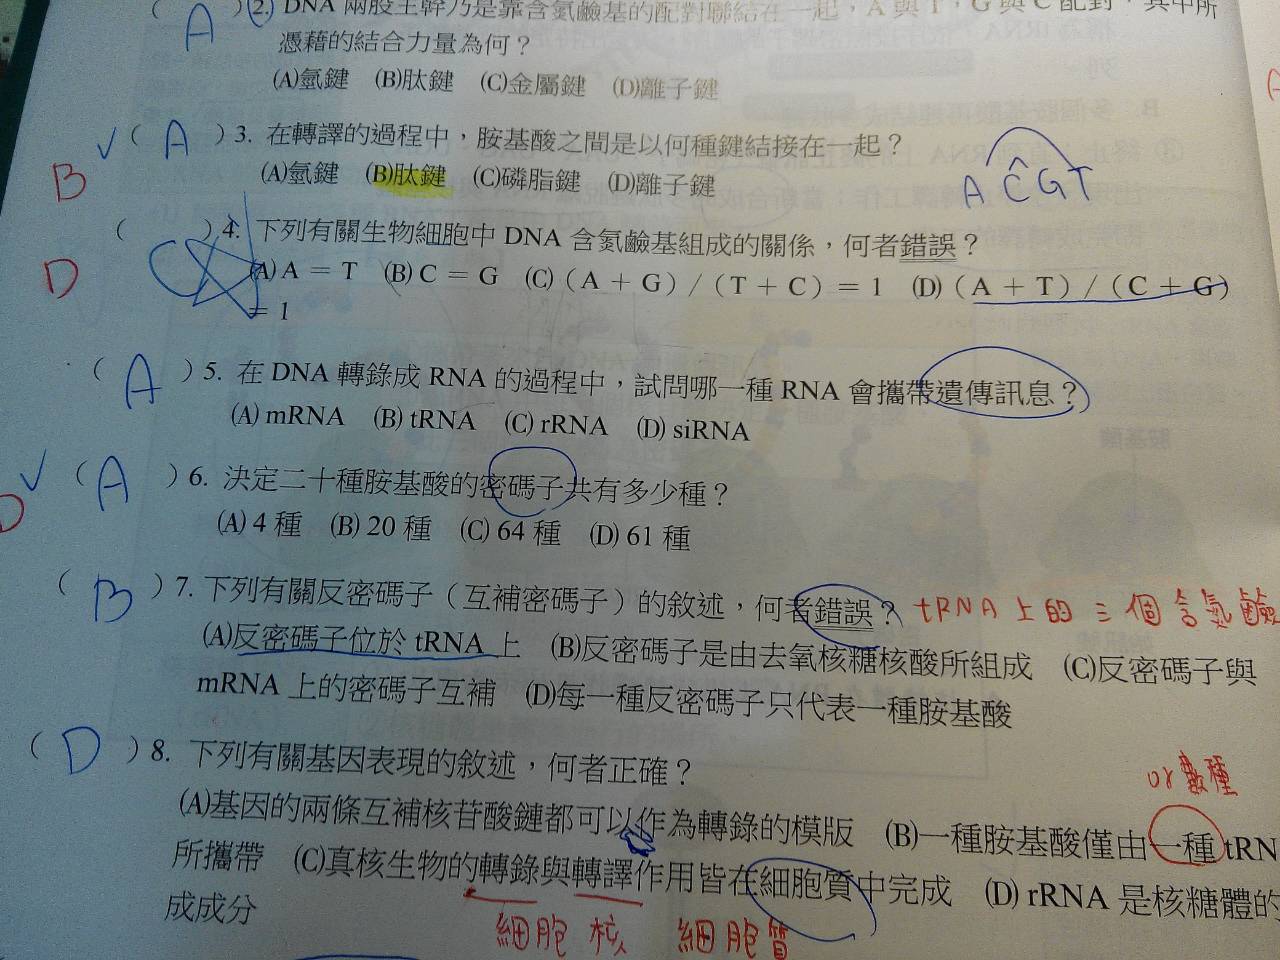 ( A )2. DNA 兩股主幹乃是靠含氮鹼基的配對聯結在一起，A 與 T，G 與 C 配對，其中所
憑藉的結合力量為何？
(A)氫鍵 (B)肽鍵 (C)金屬鍵 (D)離子鍵
✓ ( A )3. 在轉譯的過程中，胺基酸之間是以何種鍵結接在一起？
B (A)氫鍵 (B)肽鍵 (C)磷脂鍵 (D)離子鍵
A C G T
( )4. 下列有關生物細胞中 DNA 含氮鹼基組成的關係，何者錯誤？
D (A) A = T (B) C = G (C) ( A + G ) / ( T + C ) = 1 (D) ( A + T ) / ( C + G )
= 1
( A )5. 在 DNA 轉錄成 RNA 的過程中，試問哪一種 RNA 會攜帶遺傳訊息？
(A) mRNA (B) tRNA (C) rRNA (D) siRNA
✓ ( A )6. 決定二十種胺基酸的密碼子共有多少種？
D (A) 4 種 (B) 20 種 (C) 64 種 (D) 61 種
( B )7. 下列有關反密碼子（互補密碼子）的敘述，何者錯誤？ tRNA上的三個含氮鹼
(A)反密碼子位於 tRNA 上 (B)反密碼子是由去氧核糖核酸所組成 (C)反密碼子與
mRNA 上的密碼子互補 (D)每一種反密碼子只代表一種胺基酸
( D )8. 下列有關基因表現的敘述，何者正確？
or 數種
(A)基因的兩條互補核苷酸鏈都可以作為轉錄的模版 (B)一種胺基酸僅由一種 tRN
所攜帶 (C)真核生物的轉錄與轉譯作用皆在細胞質中完成 (D) rRNA 是核糖體的
成成分
細胞核 細胞質